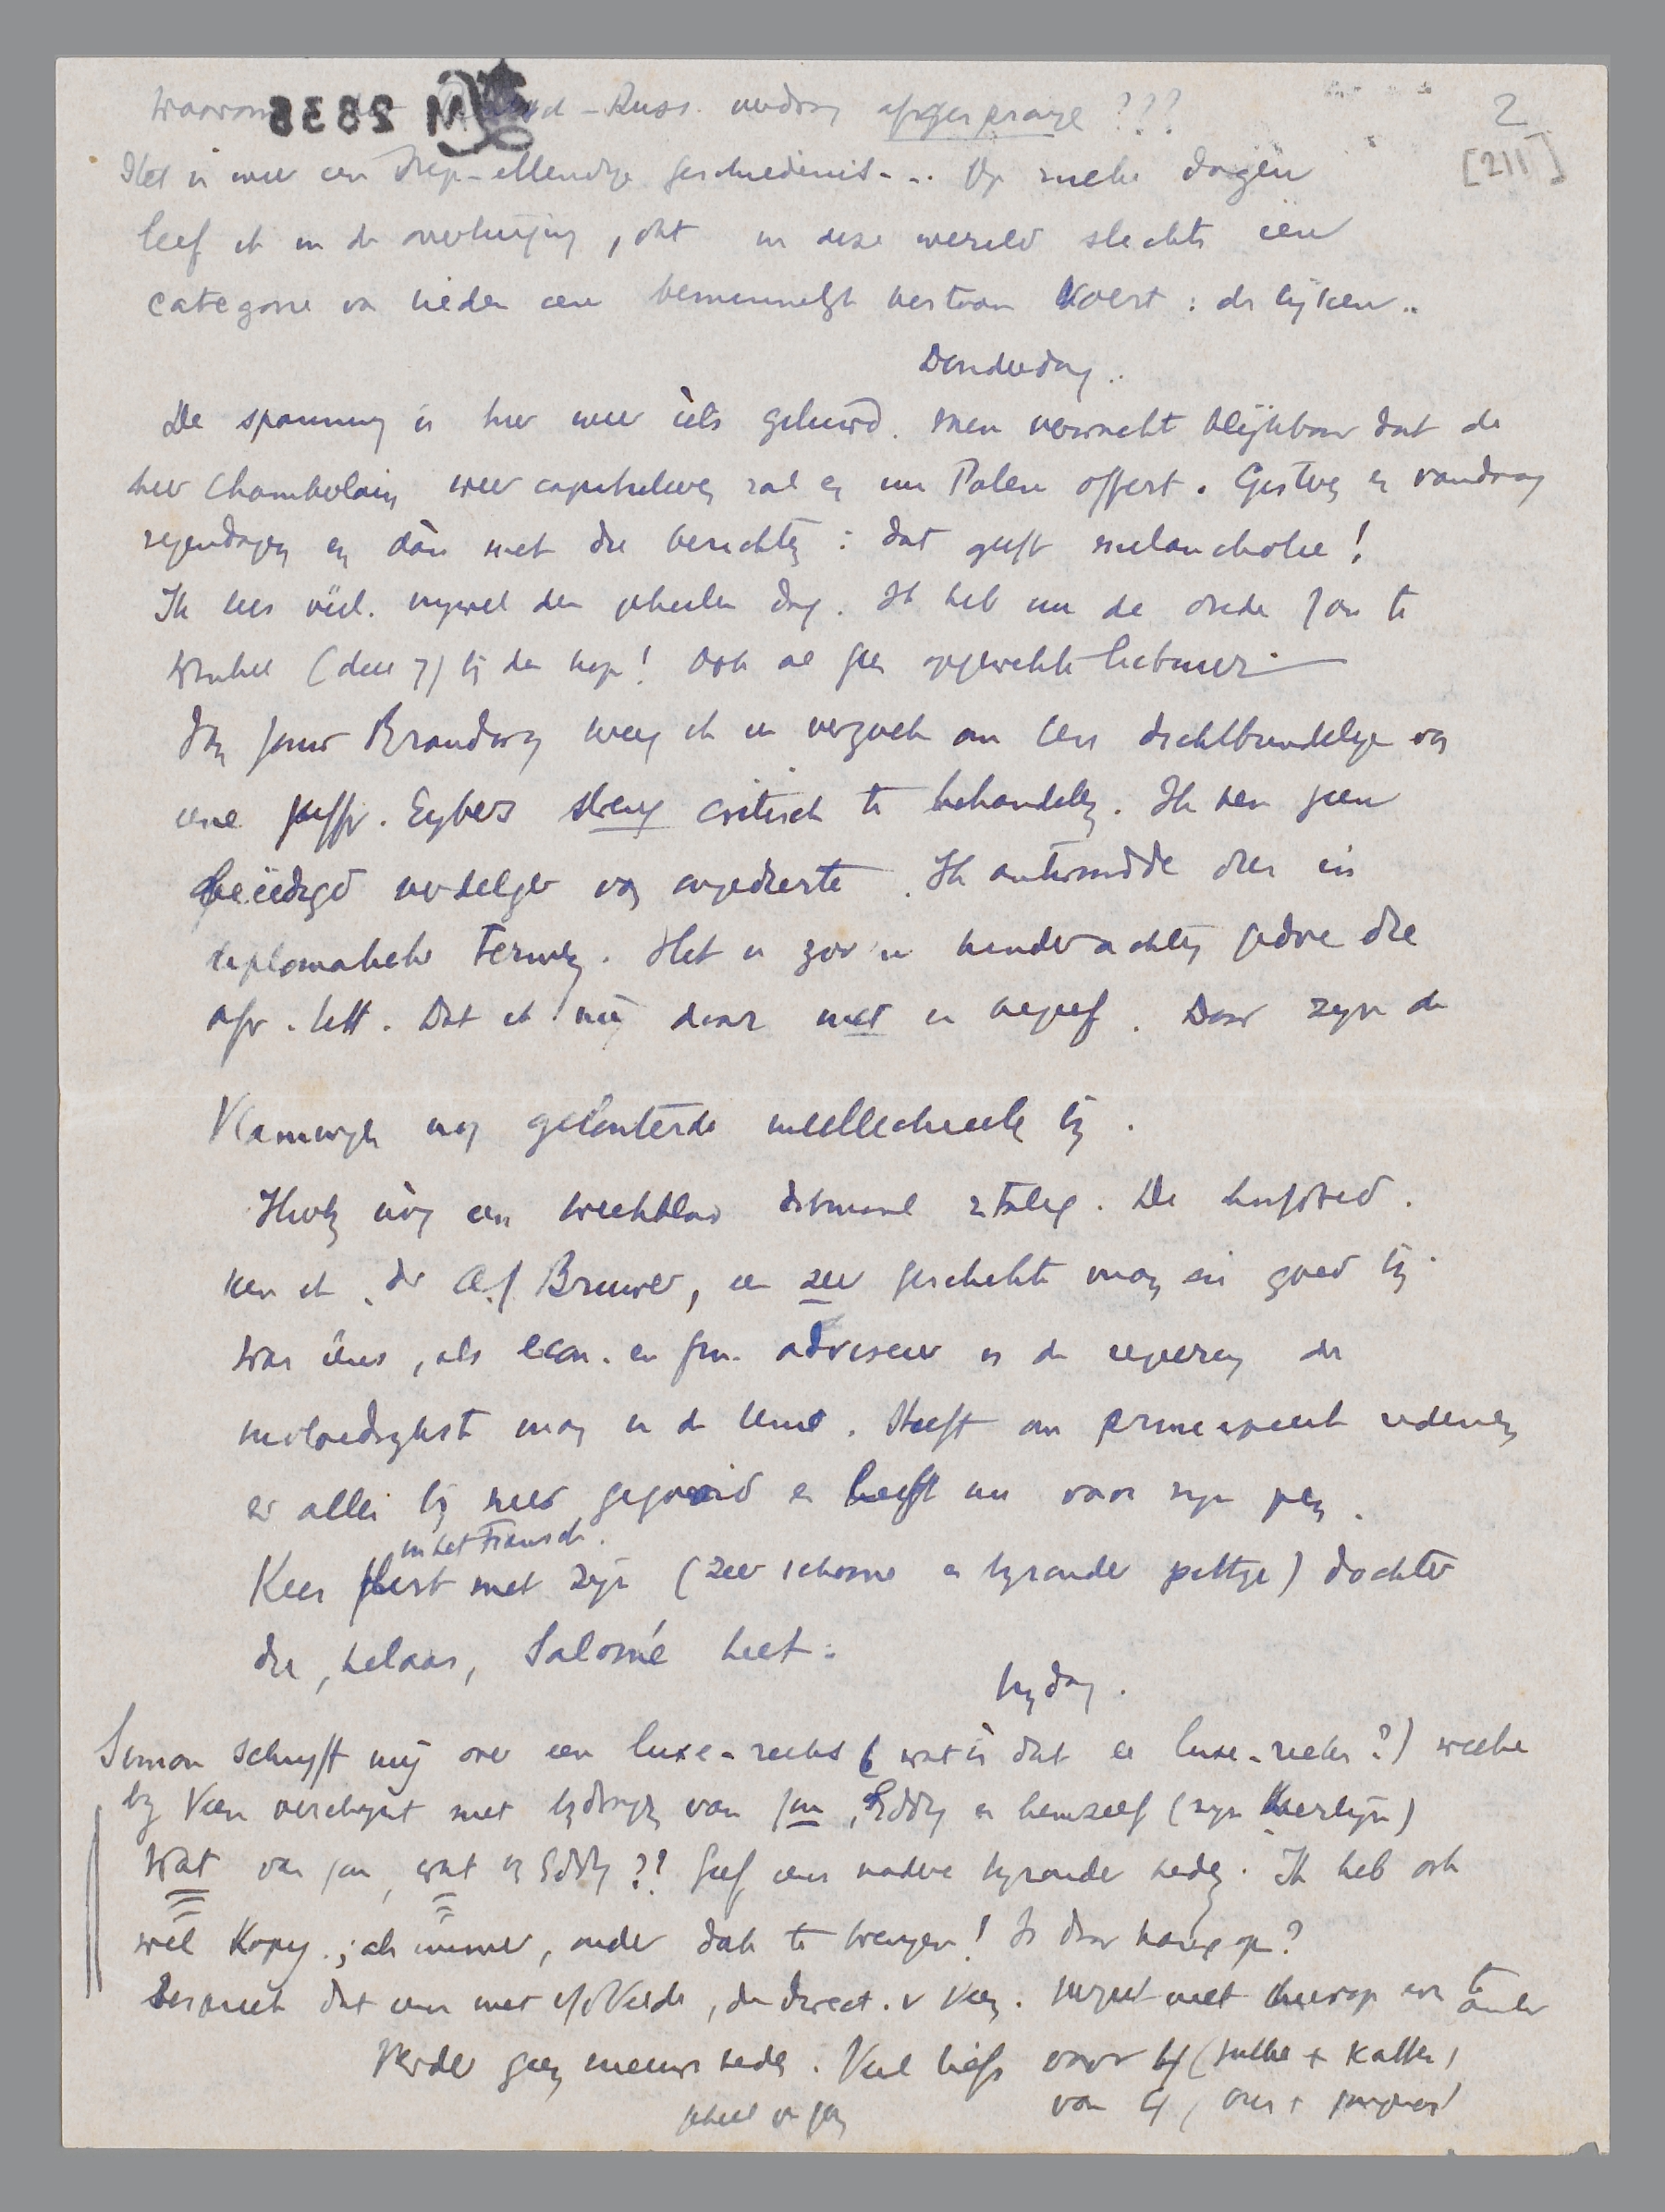 2
[211]
M 2838
Waarom Duitsch-Russ. verdrag afgesprongen ???
Het is weer een diep-ellendige geschiedenis... Op zulke dagen
leef ik in de overtuiging, dat in deze wereld slechts één
categorie van lieden een benijdenswaardig bestaan voert : de lijken..
Donderdag..
De spanning is hier weer iets geluwd. Men verwacht blijkbaar dat de
heer Chamberlain weer capituleeren zal en nu Polen offert. Gisteren en vandaag
regendagen en dàn met die berichten : dat geeft melancholie !
Ik lees véél. vrijwel den geheelen dag. Ik heb nu de oude Jan te
Winkel (deel 7) bij de kop ! Ook al geen opgewekte lectuur.
Van jouw Brandwag kreeg ik een verzoek om een dichtbundeltje van
eene juffr. Eybers streng critisch te behandelen. Ik ben geen
beëedigd verdelger van ongedierte. Ik antwoordde dus in
diplomatieke termen. Het is zoo'n kinderachtig gedoe die
afr. lett. Dat ik mij daar niet in begeef. Daar zijn de
Vlamingen nog gelouterde intellectueelen bij.
Hierbij nòg een weekblad ditmaal 2talig. De hoofdred.
ken ik, dr A.J. Bruwer, een zeer geschikte man en goed bij.
Was eens, als econ. en fin. adviseur van de regeering de
invloedrijkste man in de Unie. Heeft om principieele redenen
er alles bij neer gegooid en leeft nu voor zijn pen.
in het Fransch.
Kees flirt met zijn (zeer schoone en bijzonder pittige) dochter
die, helaas, Salomé heet.
Vrijdag.
Simon schrijft mij over een luxe-reeks (wat is dat een luxe-reeks ?) welke
bij Veen verschijnt met bijdragen van jou, Eddy en hemzelf (zijn Merlijn)
Wat van jou, wat van Eddy ?? Geef eens nadere bijzonderheden. Ik heb ook
wel kopij ; als immer, onder dak te brengen ! Is daar kans op ?
Bespreek dat eens met v/d Velde, de direct. v Veen. Vergeet niet hierop even te antw.
Verder geen nieuws heden. Veel liefs voor 4 (jullie + katten)
van 4 (ons + jongens)
geheel je Jan